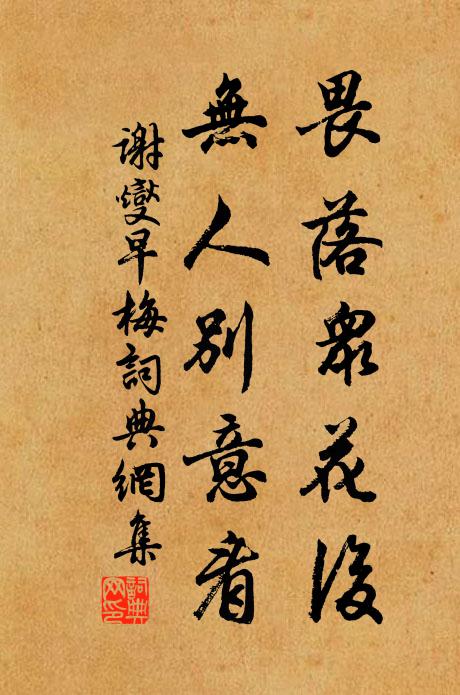 畏落眾花後
無人別意看
謝燮早梅詞典網集
詞典网印